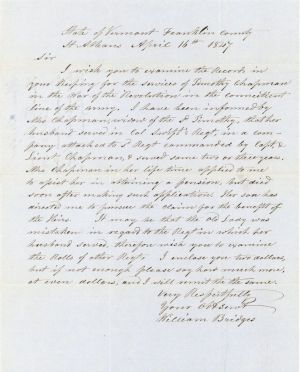 State of Vermont Franklin County
St Albans April 16th 1847
Sir
I wish you to examine the Records in
your keeping for the services of Timothy Chapman
in the War of the Revolution in the Connecticut
line of the army. I have been informed by
Mrs Chapman, widow of the sd Timothy, that her
husband served in Col Swift's Regt, in a com-
pany attached to sd Regt commanded by Capt &
Lieut Chapman, & served some two or three years.
Mrs Chapman in her life time applied to me
to assist her in obtaining a pension, but died
soon after making such application. Her son has
directed me to pursue the claim for the benefit of
the Heirs. It may be that the Old Lady was
mistaken in regard to the Regt in which her
husband served, therefore wish you to examine
the Rolls of other Regts. I enclose you two dollars,
but if not enough please say how much more,
at even dollars, and I will remit the same.
Very Respectfully
Your Obt Servt
William Bridges